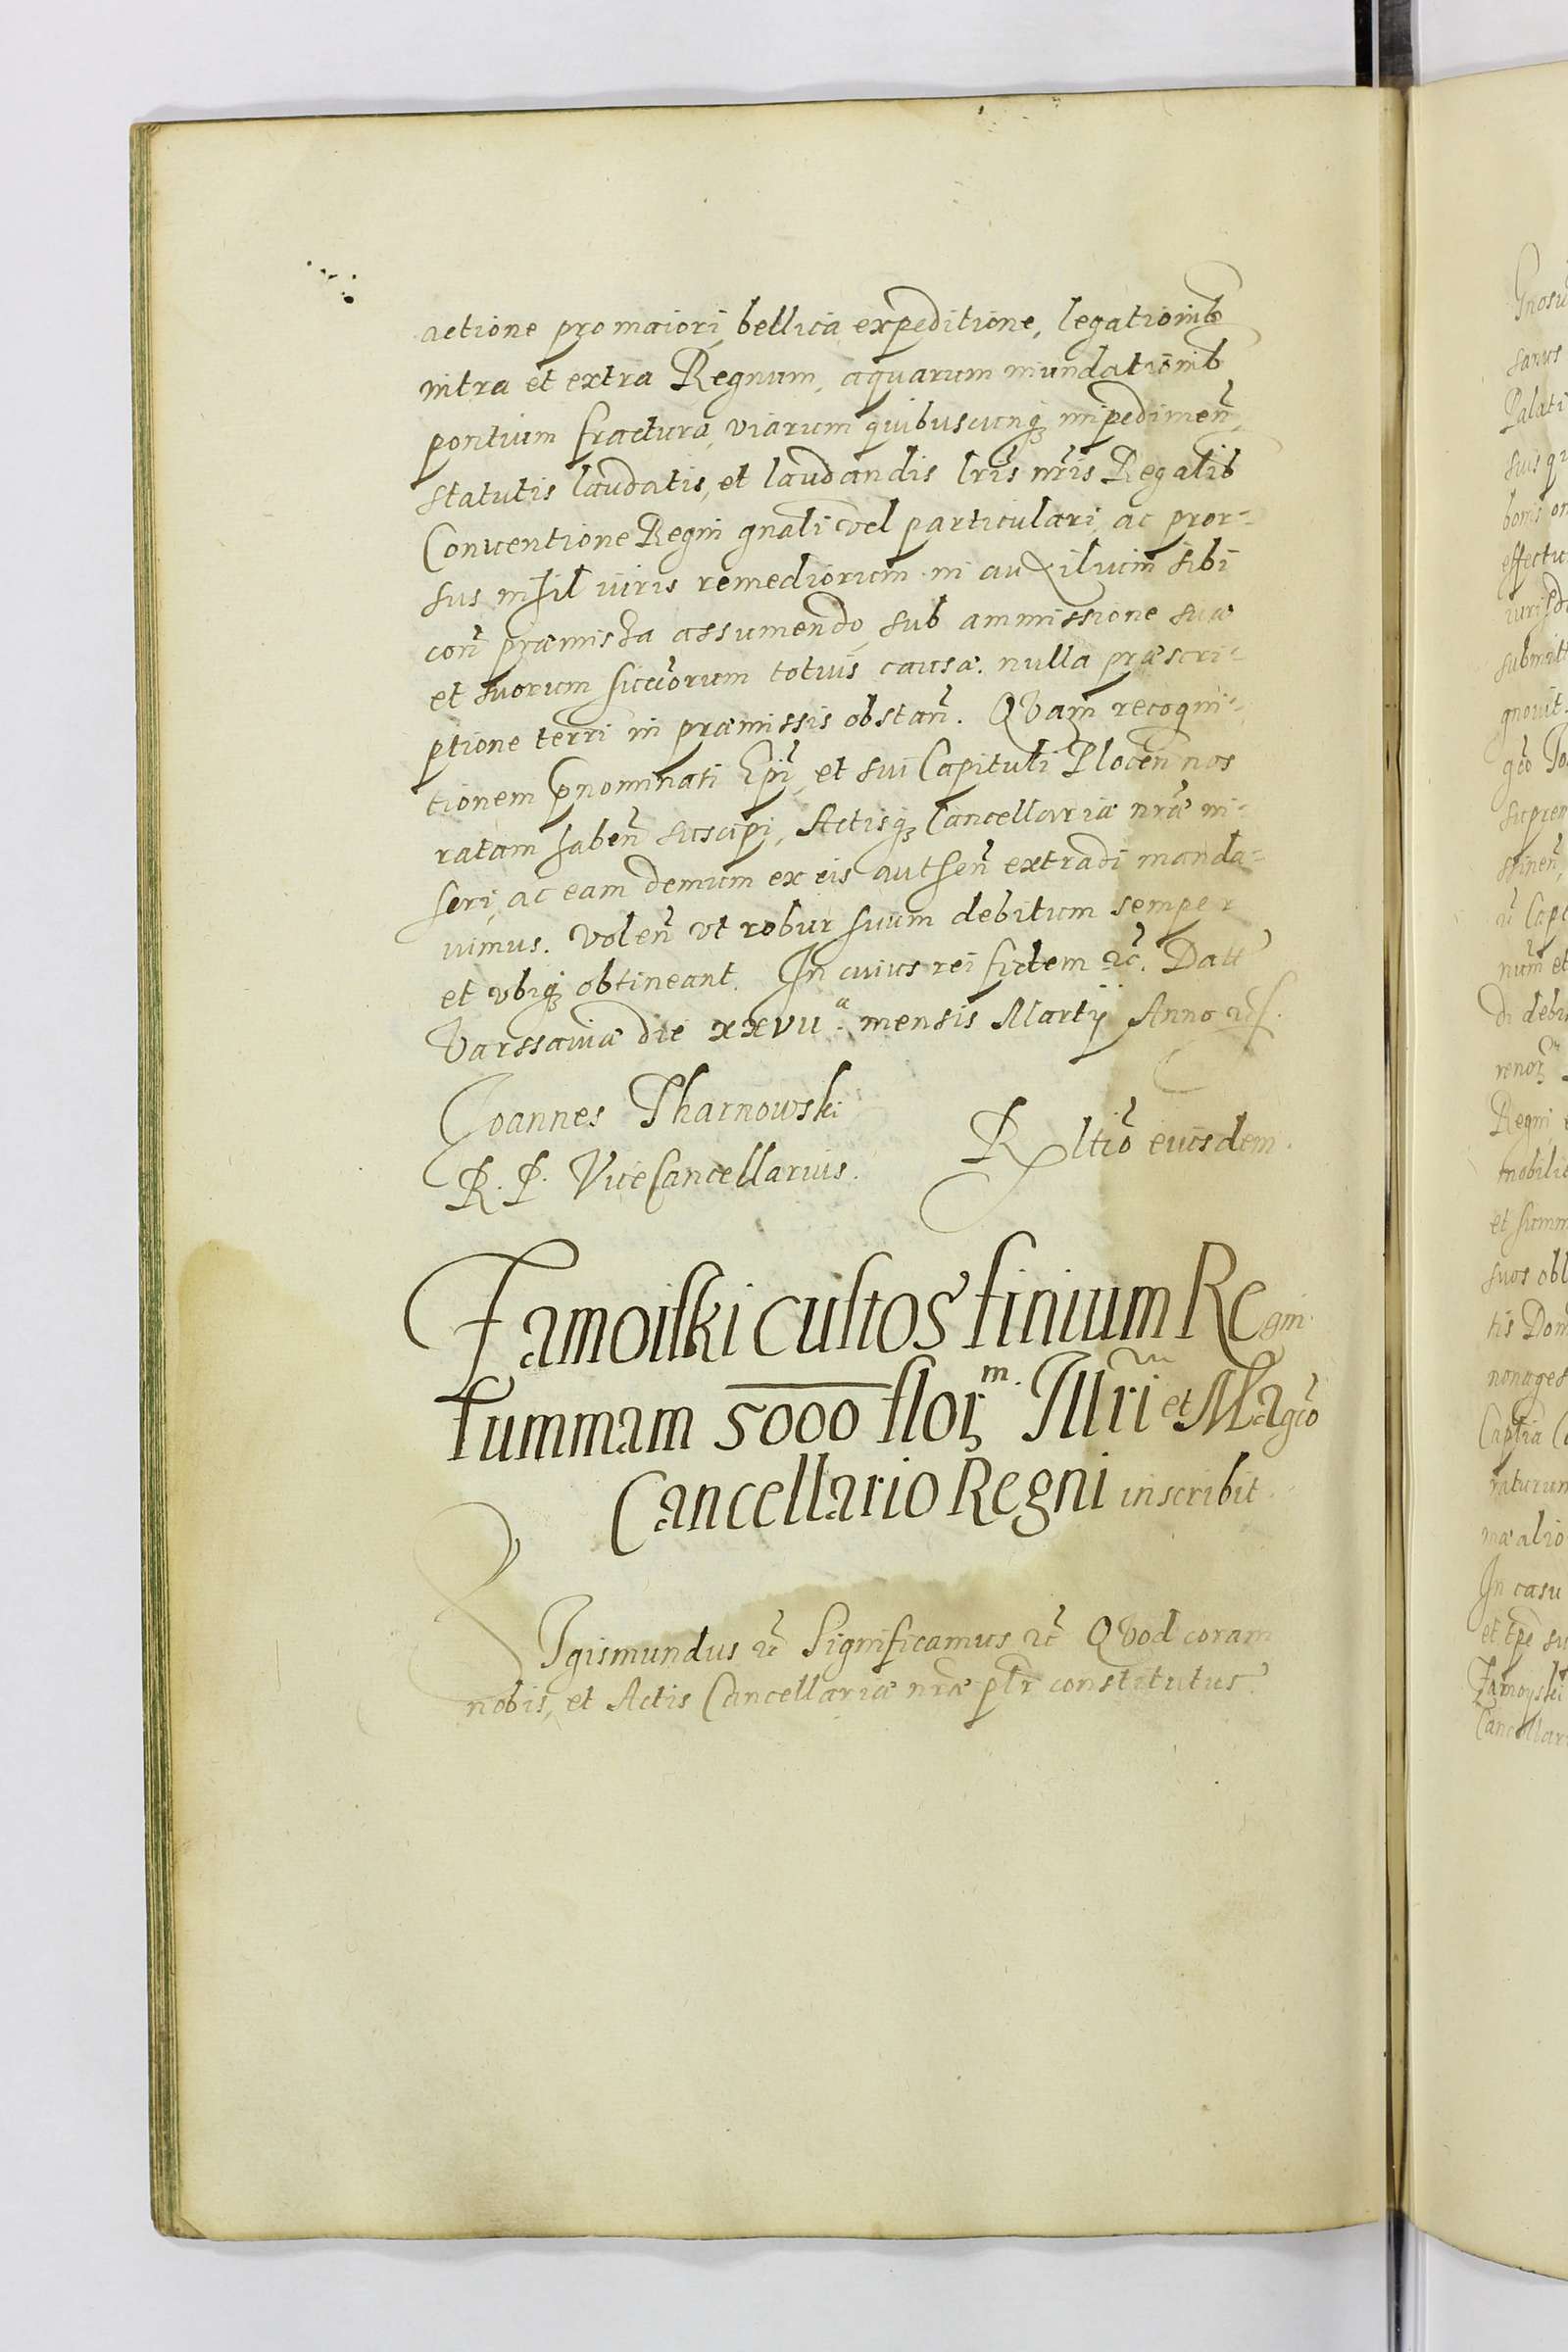 actione pro maiori, bellica expeditione, legationib
intra et extra Regnum, aquarum inundationib
pontium fractura, viarum quibuscunq impedimen,
statutis laudatis, et laudandis lris nris Regalib
Conventione Regni gnali vel particulari, ac pror-
sus nihil iuris remediorum in auxilium sibi
con præmissa assumendo, sub ammissione suæ
et suorum succorum totius causæ. nulla præscri-
ptione terri in præmissis obstan. Quam recogni-
tionem pnominati Epi, et sui Capituli Plocen nos
ratam haben suscipi, Actisq Cancellariæ nræ in-
seri, ac eam demum ex eis authen extradi manda-
uimus. Volen vt robur suum debitum semper
et vbiq obtineant. In cuius rei fidem &c. Datt
Varssauiæ die xxvii a mensis Martij Anno &c.
Joannes Tharnowski
R. P. ViceCancellarius.
Rltio eiusdem.
Zamoiski custos finium Regni
summam 5000 flor m. Illri et Magco
Cancellario Regni inscribit.
SIgismundus &c Significamus &c Quod coram
nobis, et Actis Cancellariæ nræ pltr constitutus
Gnosu
sanus
Palati
suis q
bonis
effectu
submitt
gnouit.
gco Jo
suprem
Capt
num et
di debi
Regni
nobili
et summ
suos obl
tis Dom
nonages
raturum
mæ alio
In casu
et tpe su
Zamoyski
Cancellari